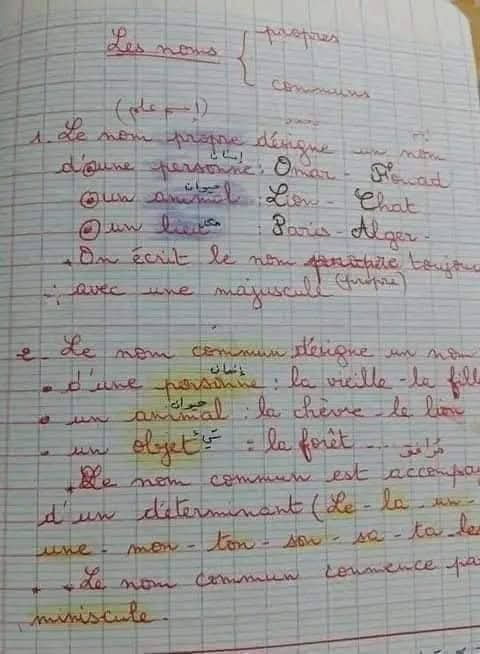 Les noms { propres
communs
(إسم علم)
1. Le nom propre désigne un nom
إنسان
d'une personne : Omar - Fouad
حيوان
un animal : Lion - Chat
مكان
un lieu : Paris - Alger -
On écrit le nom propre toujou
avec une majuscule (propre)
2. Le nom commun désigne un nom
إنسان
• d'une personne : la vieille - la fille
حيوان
• un animal : la chèvre - le lion
شيء
• un objet : la forêt ... مرافق
Le nom commun est accompag
d'un déterminant (Le - la - un -
une - mon - ton - son - sa - ta - les
Le nom commun commence pa
miniscule.